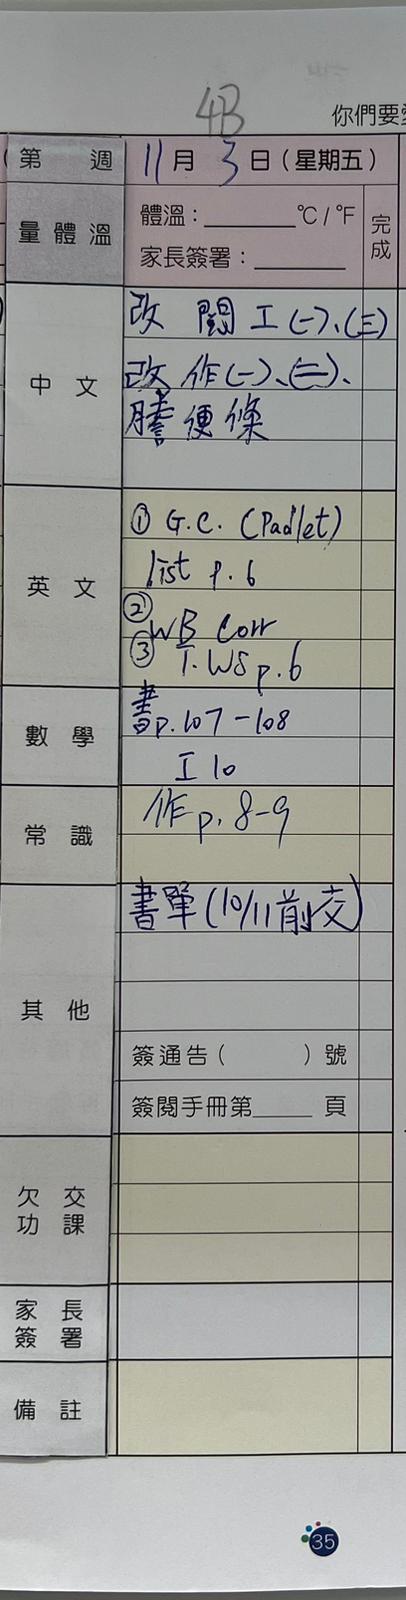 4B
你們要
第 週
11月3日(星期五)
量體溫
體溫:______℃/℉
家長簽署:______
完成
中文
改 閱工(一)、(三)
改作(一)、(二)、
謄便條
英文
① G.C. (Padlet)
list p.6
② WB Corr
③ T. WS p.6
數學
書p.107-108
I 10
常識
作p.8-9
其他
書單(10/11前交)
簽通告( )號
簽閱手冊第____頁
欠交功課
家長簽署
備註
35